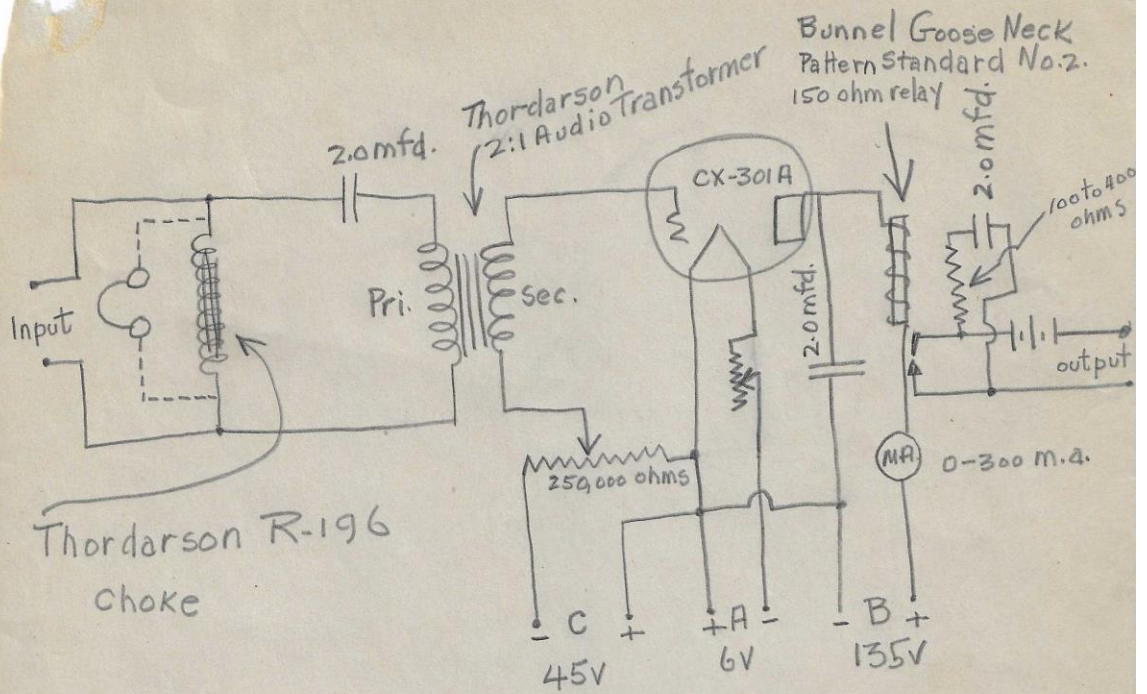 Bunnel Goose Neck
Pattern Standard No.2.
150 ohm relay
2.0mfd.
100 to 400
ohms
Thordarson
2:1 Audio Transformer
2.0mfd.
CX-301A
Input
Pri.
Sec.
2.0mfd.
output
250,000 ohms
MA
0-300 m.a.
Thordarson R-196
Choke
- C +
45V
+ A -
6V
- B +
135V